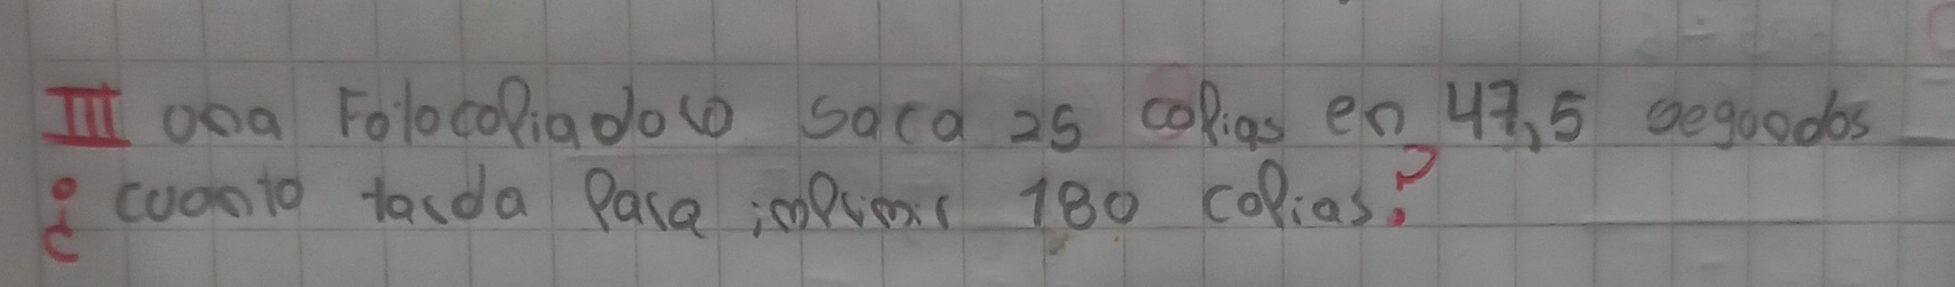 III una Fotocopiadora saca 25 copias en 47,5 segundos
¿cuanto tarda para imprimir 180 copias?